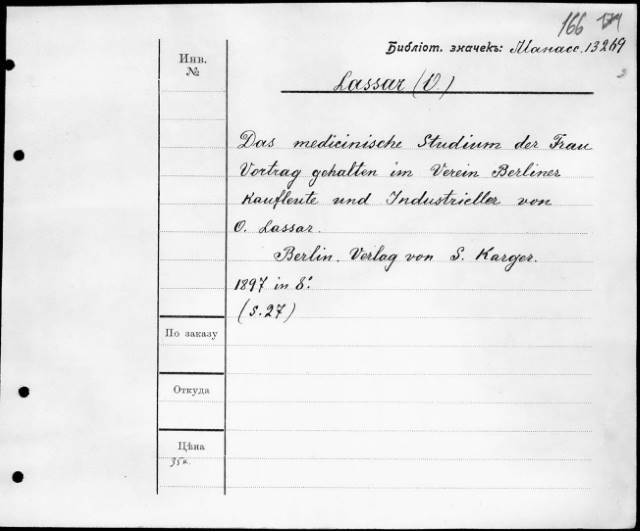 166
Библіот. значекъ: Манасс. 13269
Инв.
№
Lassar (O.)
Das medicinische Studium der Frau
Vortrag gehalten im Verein Berliner
Kaufleute und Industrieller von
O. Lassar.
Berlin. Verlag von S. Karger.
1897 in 8º
(s. 27)
По заказу
Откуда
Цѣна
35 к.